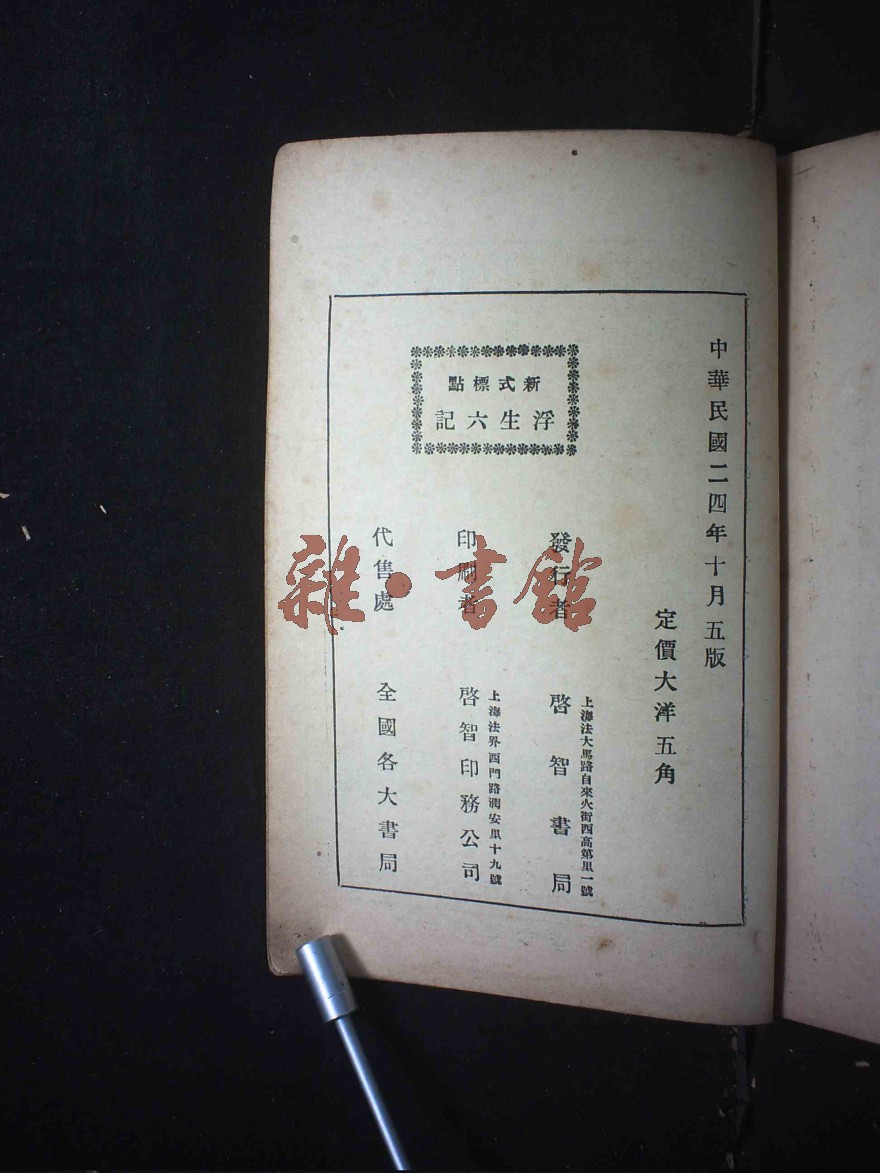 中華民國二四年十月五版
定價大洋五角
新式標點
浮生六記
發行者
上海法大馬路自來火街西高第里一號
啓智書局
印刷者
上海法界西門路潤安里十九號
啓智印務公司
代售處
全國各大書局
雜·書館